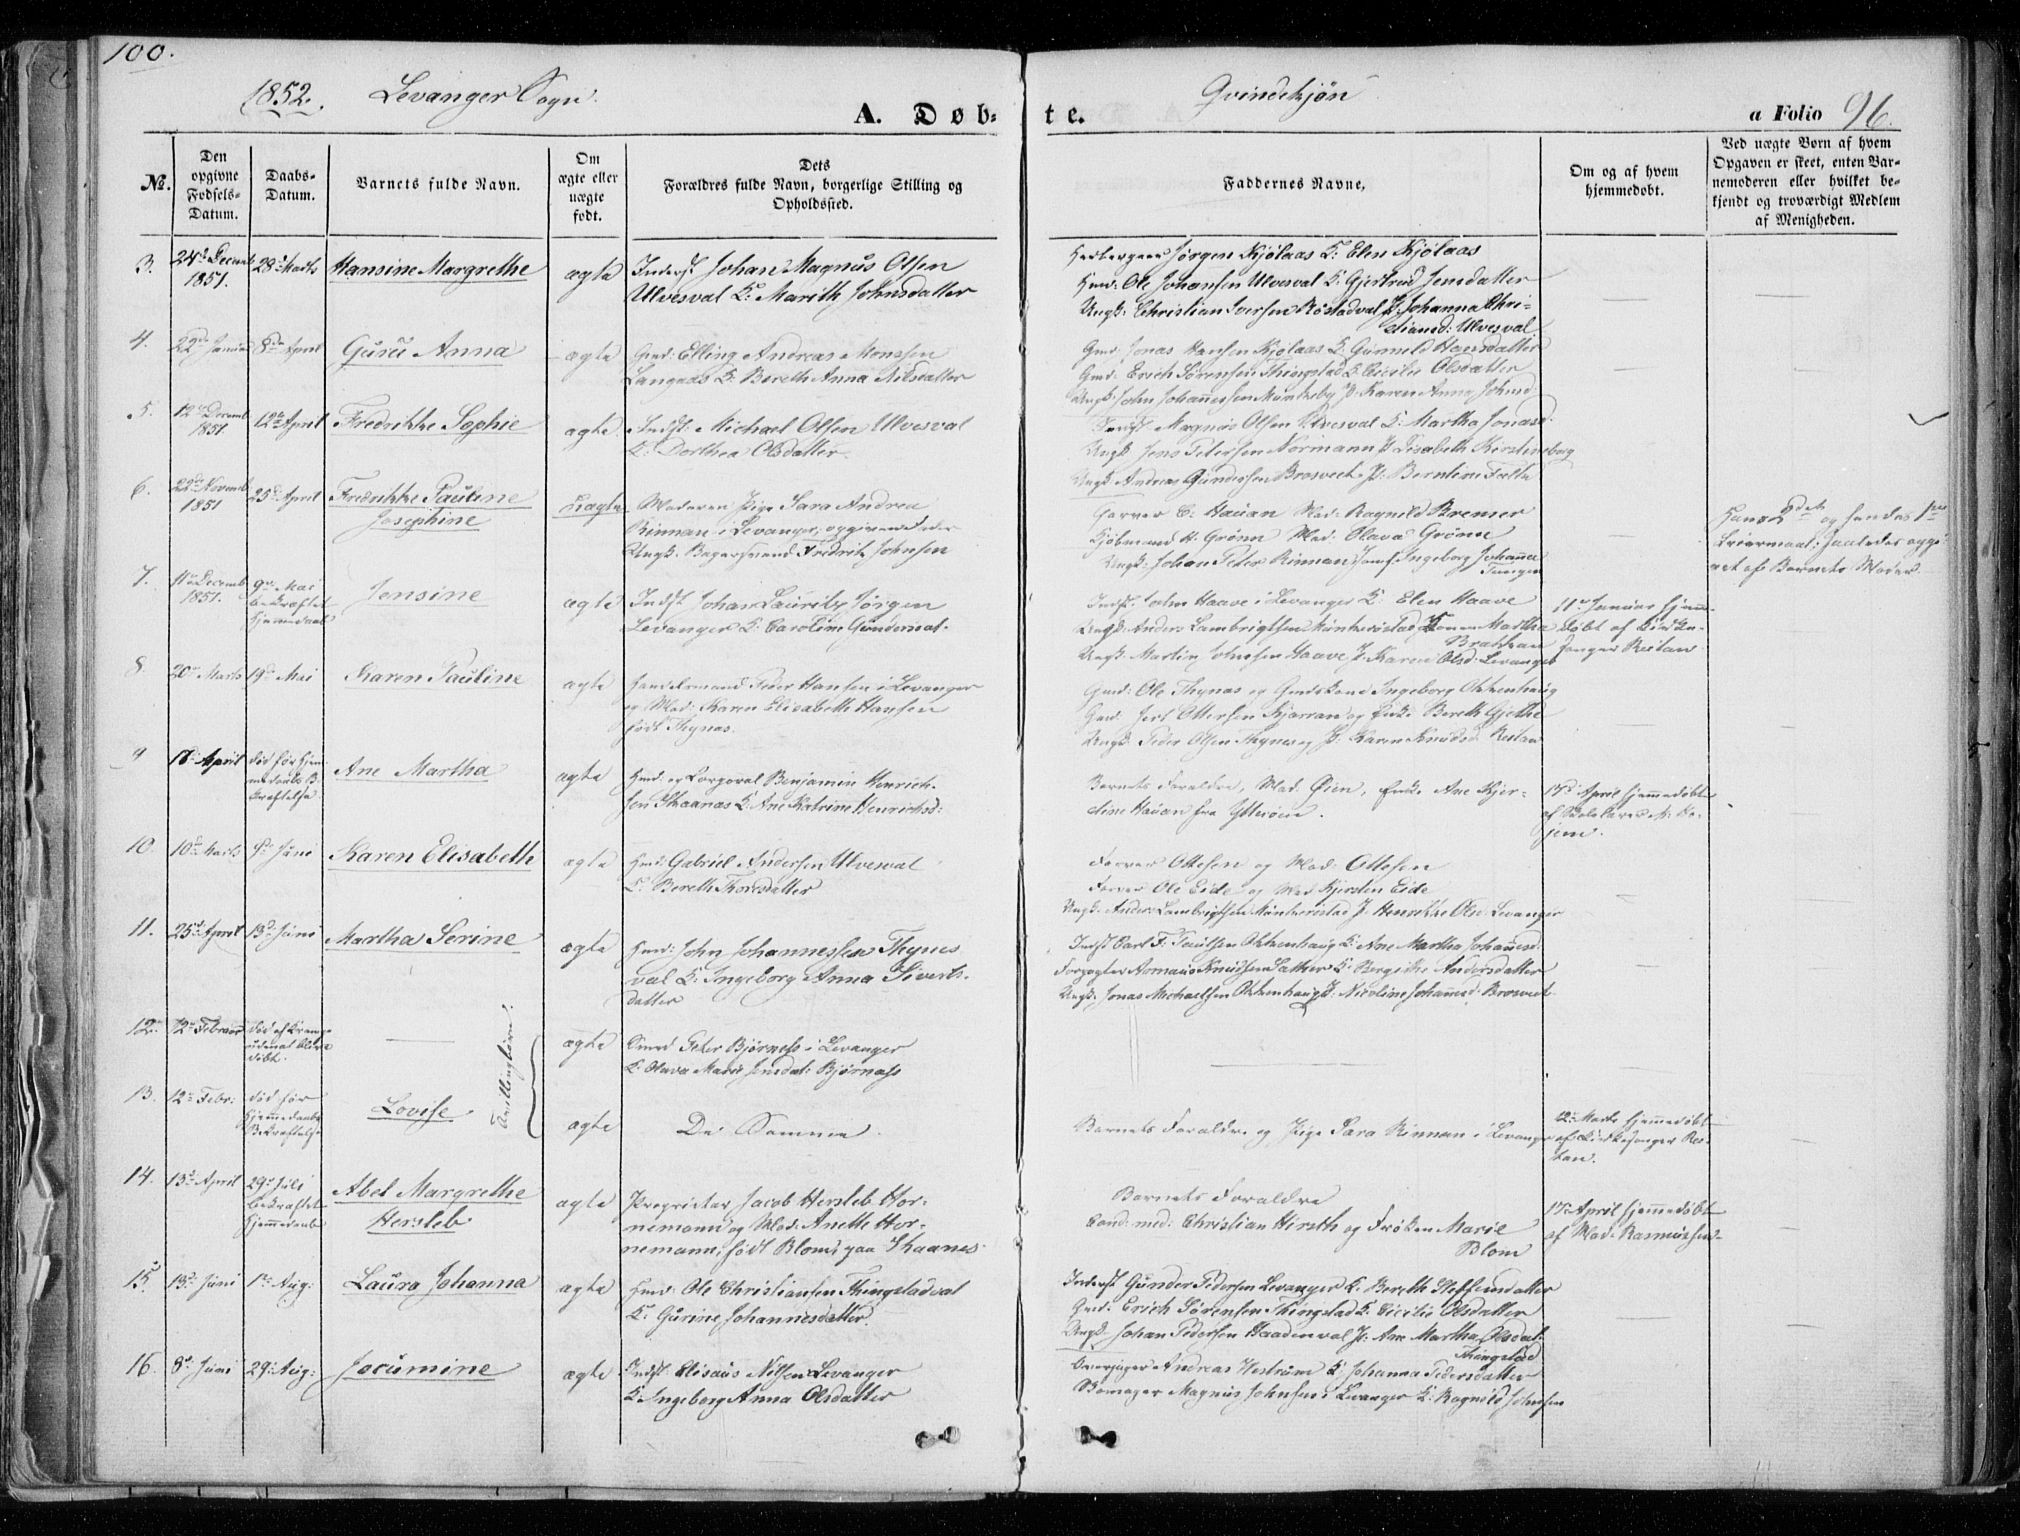 100.
1852. Levanger Sogn.
Qvindekjøn
A. Døb-
te.
a Folio 96.
No.
Den opgivne Fødsels-Datum.
Daabs-Datum.
Barnets fulde Navn.
Om ægte eller uægte født.
Dets Forældres fulde Navn, borgerlige Stilling og Opholdssted.
Faddernes Navne,
Om og af hvem hjemmedøbt.
Ved uægte Børn af hvem Opgaven er skeet, enten Barnemoderen eller hvilket bekjendt og troværdigt Medlem af Menigheden.
3. 24de Decemb 1851. 28de Marts Hansine Margrethe ægte
Inderst Johan Magnus Olsen
Ulvesval K. Marith Johnsdatter
Jørgen Kjølaas K: Elen Kjølaas
Hmd: Ole Johansen Ulvesval K. Gjertrud Jensdatter
Ungk: Christian Iversen Røstadval P. Johanna Chri-
stiansd: Ulvesval
4. 22de Januar 8de April Guru Anna ægte
Gmd: Elling Andreas Monssen
Langaas K. Bereth Anna Nilsdatter
Gmd. Jonas Hansen Kjølaas K. Gunneld Hansdatter
Gmd. Erich Sørensen Thingstad K. Cicilie Olsdatter
Ungk: John Johannessen Munkeby P. Karen Anna Johnsd
5. 12te Decemb 1851. 12te April Fredrikke Sophie ægte
Indst. Michael Olsen Ulvesval
K. Dorthea Olsdatter.
Indst Magnus Olsen Ulvesval K. Martha Jonasd:
Ungk Jens Petersen Normann P. Lisabeth Kirstineborg
Ungk Andreas Gundersen Brosveet P. Berntine Falla
6. 22de Novemb 1851 25de April Fredrikke Pauline Josephine uægte
Moderen Pige Sara Andrea
Rinnan i Levanger, opgiven Fader
Ungk. Bagersvend Fredrik Johnsen
Garver C. Hauan Mad. Ragnild Bremer
Kjøbmand H. Grønn Mad. Olava Grønn
Ungk: Johan Peter Rinnan Jomf. Ingeborg Johanna
Tungen
Hans 2det og hendes 1ste
Leiermaal; saaledes opgi-
vet af Barnets Moder.
7. 11te Decemb 1851. 9de Mai bekræftet Hjemmedaab Jensine ægte
Indst Johan Lauritz Jørgen
Levanger K: Caroline Gundersdat:
Indst. John Haave i Levanger K: Elen Haave
Ungk. Anders Lambrigtsen Munkrøstad Martha
Brakkan
Ungk. Martin Johnsen Haave P. Karen Olsd: Levanger
11te Januar hjem-
døbt af Kirke-
sanger Restan
8. 20de Marts 19de Mai Karen Pauline ægte
Handelsmand Peder Hansen i Levanger
og Mad: Karen Elisabeth Hansen
født Thynæs.
Gmd: Ole Thynæs og Gmdskone Ingeborg Okkenhaug
Gmd. Otterssen Kjerran og Enke Bereth Gjethe
Ungk. Peder Olsen Thynes og P. Karen Knudsd. Restan
9 April død før Hjem-
medaabs B-
kræftelse. Ane Martha ægte
Hmd. og Corporal Benjamin Henrich-
sen Skaanæs K. Ane Katrine Henrichsd:
Barnets Forældre, Mad. Øien, Enke Ane Kjer-
stine Hauan fra Ytterøen.
17de April hjemmedøbt
af Skolelærer
10. 10de Marts Juni Karen Elisabeth ægte
Hmd: Gabriel Andersen Ulvesval
K. Bereth Thoresdatter
Farver Ottesen og Mad: Ottesen
Farver Ole Eide og Mad. Kjersten Eide
Ungk. Anders Lambrigtsen Munkrøstad P. Henrikke Olsd. Levanger
11. 25de April 13de Juni Martha Serine ægte
Hmd: John Johannessen Thynes
val K: Ingeborg Anna Siverts-
datter
Indst Carl F. Paulsen Okkenhaug K. Ane Martha Johannesd:
Forpagter Knudsen K. Bergitte Andersdatter
Ungk. Jonas Michaelsen Okkenhaug P. Nicoline Johannesd: Brosveet
12. 12te Februar død af Krampe
udenat blive
døbt. Tvillingbørn ægte
Smed Peter Bjørnæss i Levanger
K. Olava Marie Jensdat: Bjørnæss
13. 12te Febr: død før
Hjemmedaabs
Bekræftelse Lovise ægte
De Samme
Barnets Forældre og Pige Sara Rinnan i Levanger
12te Marts hjemmedøbt
af Kirkesanger Res-
tan.
14. 13de April 29de Juli bekræftet
Hjemmedaab Abel Margrethe
Hersleb ægte
Proprietær Jacob Hersleb Hor-
nemann og Mad: Anette Hor-
nemann, født Blom, paa Skaanes.
Barnets Forældre
Cand: med: Christian Hirsth og Frøken Marie
Blom
17de April hjemmedøbt
af Mad. Rasmussen
15. 13de Juni 1ste Aug: Laura Johanna ægte
Hmd: Ole Christiansen Thingstadval
K. Gurine Johannesdatter
Inderst Gunder Pedersen Levanger K. Bereth Steffensdatter
Gmd: Erich Sørensen Thingstad K. Cicilie Olsdatter
Ungk. Johan Pedersen Haadenval P. Ane Martha Olsdat:
Thingstad
16. 8de Juni 29de Aug: Jocumine ægte
Indst Elisæus Nilsen Levanger
K: Ingeborg Anna Olsdatter
Andreas Westrum K. Johanna Pedersdatter
Magnus Johnsen i Levanger K. Ragnild Johnsen